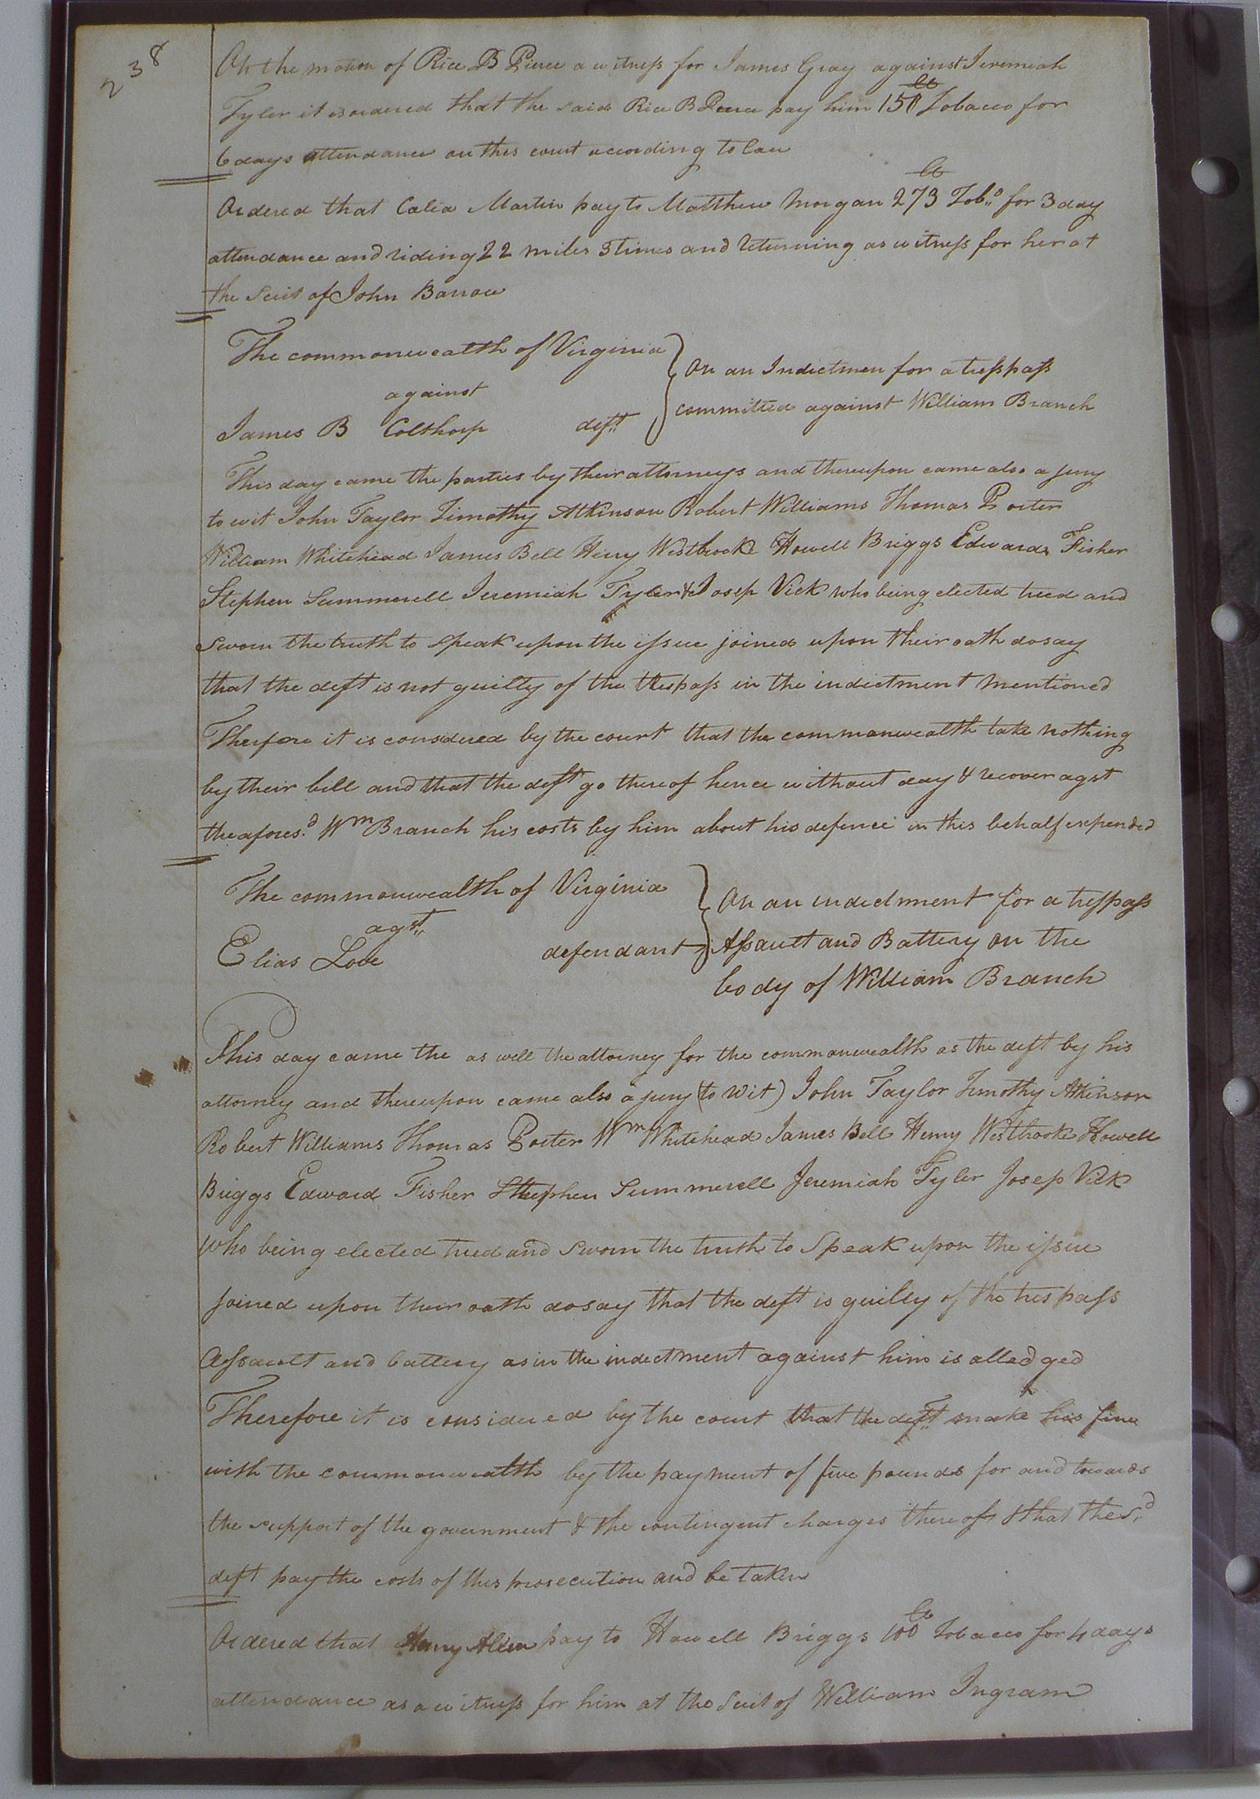 238
On the motion of Rice B Pierce a witness for James Gray against Jeremiah
Tyler it is ordered that the said Rice B Pierce pay him 150 lb Tobacco for
6 days attendance on this court according to law
Ordered that Celia Martin pay to Matthew Morgan 273 lb Tobo. for 3 day
attendance and riding 22 miles 3 times and returning as witness for her at
the suit of John Barrow
The commonwealth of Virginia
against
James B Colthorp deft
On an Indictmen for a tresspass
committed against William Branch
This day came the parties by their attorneys and thereupon came also a jury
to wit John Taylor Timothy Atkinson Robert Williams Thomas Porter
William Whitehead James Bell Henry Westbrook Howell Briggs Edwards Fisher
Stephen Summerell Jeremiah Tyler & Josep Vick who being elected tried and
sworn the truth to speak upon the issue joined upon their oath do say
that the deft is not guilty of the trespass in the indictment mentioned
Therefore it is considered by the court that the commonwealth take nothing
by their bill and that the deft go thereof hence without day & recover agst
the afores.d Wm Branch his costs by him about his defence in this behalf expended
The commonwealth of Virginia
agst.
Elias Love defendant
On an indictment for a tresspass
Assault and Battery on the
body of William Branch
This day came the as well the attorney for the commonwealth as the deft by his
attorney and thereupon came also a jury (to wit) John Taylor Timothy Atkinson
Robert Williams Thomas Porter Wm Whitehead James Bell Henry Westbrook Howell
Briggs Edward Fisher Stephen Summerell Jeremiah Tyler Josep Vick
who being elected tried and sworn the truth to speak upon the issue
joined upon their oath do say that the deft is guilty of the trespass
Assault and battery as in the indictment against him is alledged
Therefore it is considered by the court that the deft make his fine
with the commonwealth by the payment of five pounds for and towards
the support of the government & the contingent charges thereof & that the s.d
deft pay the costs of this prosecution and be taken
Ordered that Henry Allen pay to Howell Briggs 100 lb Tobacco for 4 days
attendance as a witness for him at the suit of William Ingram